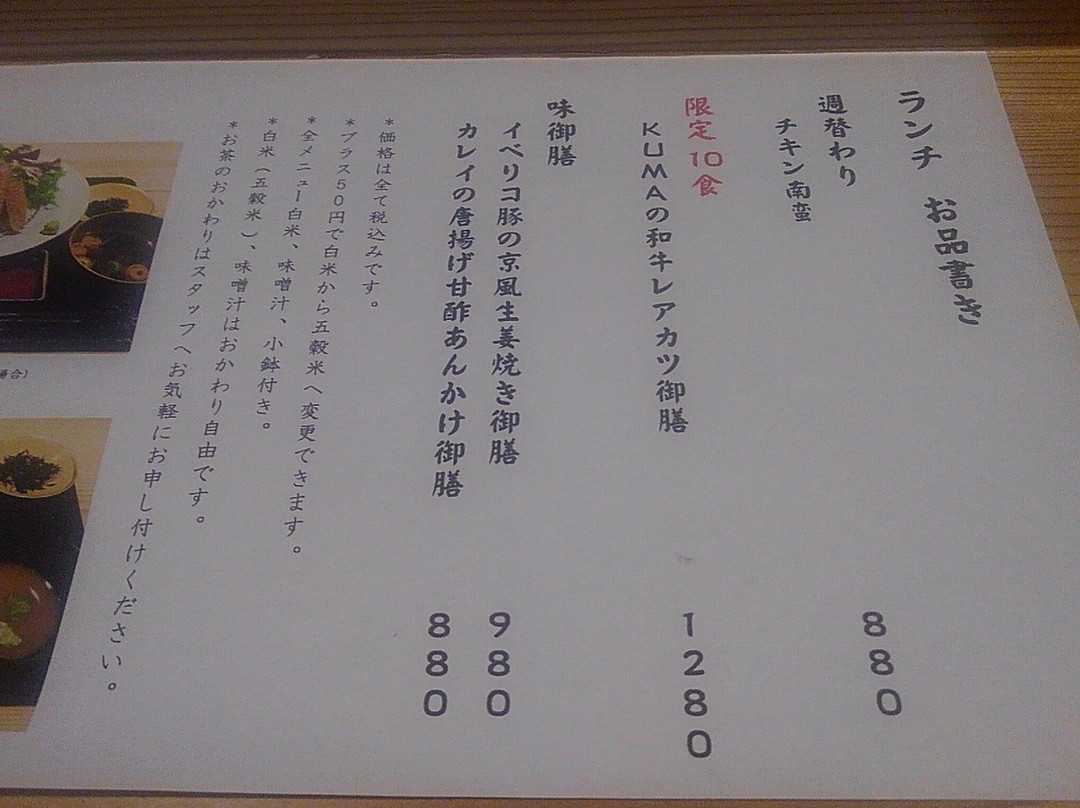 ランチ お品書き
週替わり
チキン南蛮
880
限定10食
KUMAの和牛レアカツ御膳
1280
味御膳
イベリコ豚の京風生姜焼き御膳
980
カレイの唐揚げ甘酢あんかけ御膳
880
*価格は全て税込みです。
*プラス50円で白米から五穀米へ変更できます。
*全メニュー白米、味噌汁、小鉢付き。
*白米(五穀米)、味噌汁はおかわり自由です。
*お茶のおかわりはスタッフへお気軽にお申し付けください。
場合)